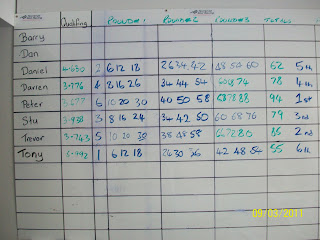 Qualifing ROUNDE 1 ROUNDE 2 ROUNDE 3 TOTALS
Barry
Dan
Daniel 4-630 2 6 12 18 26 34 42 48 50 60 62 5th
Darren 3-776 4 8 16 26 34 44 54 60 68 74 78 4th
Peter 6 10 20 30 40 50 58 68 78 88 94 1st
Stu 3-931 3 8 16 24 34 42 50 60 68 76 79 3rd
Trevor 3-743 5 10 20 30 38 48 58 66 72 80 85 2nd
Tony 3-992 1 6 12 18 26 30 36 42 48 54 55 6th
09/08/2011